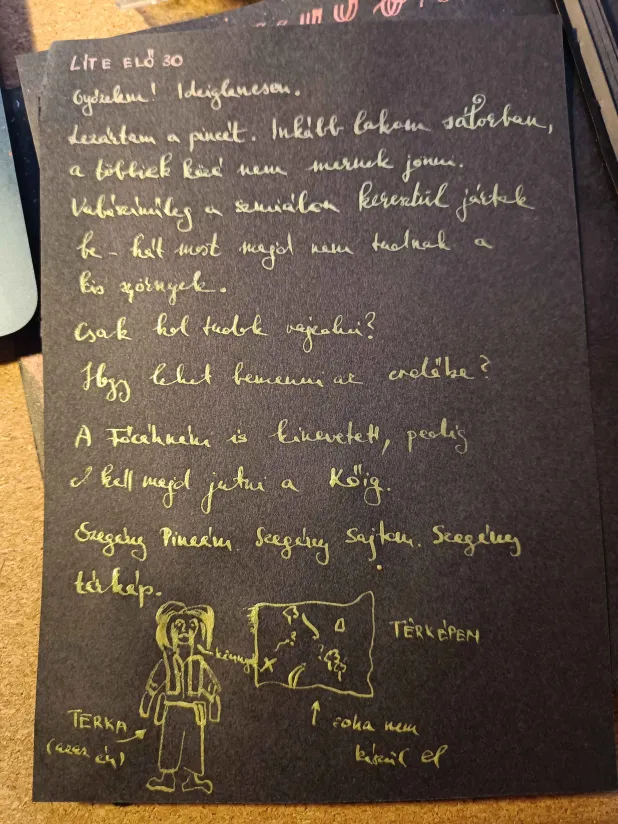 LITE ELŐ 30
Győzelem! Ideiglenesen.
Lezártam a pincét. Inkább lakom sátorban,
a többiek közé nem mernek jönni.
Valószínűleg a szmiálon keresztül jártak
be - hát most majd nem tudnak a
kis szörnyek.
Csak hol tudok rajzolni?
Hogy lehet bemenni az erdőbe?
A Fűcéhnéni is kinevetett, pedig
el kell majd jutni a Kőig.
Szegény Pincém. Szegény Sajtom. Szegény
térkép.
könnyek
TÉRKÉPEM
TERKA
(azaz én)
soha nem
készül el